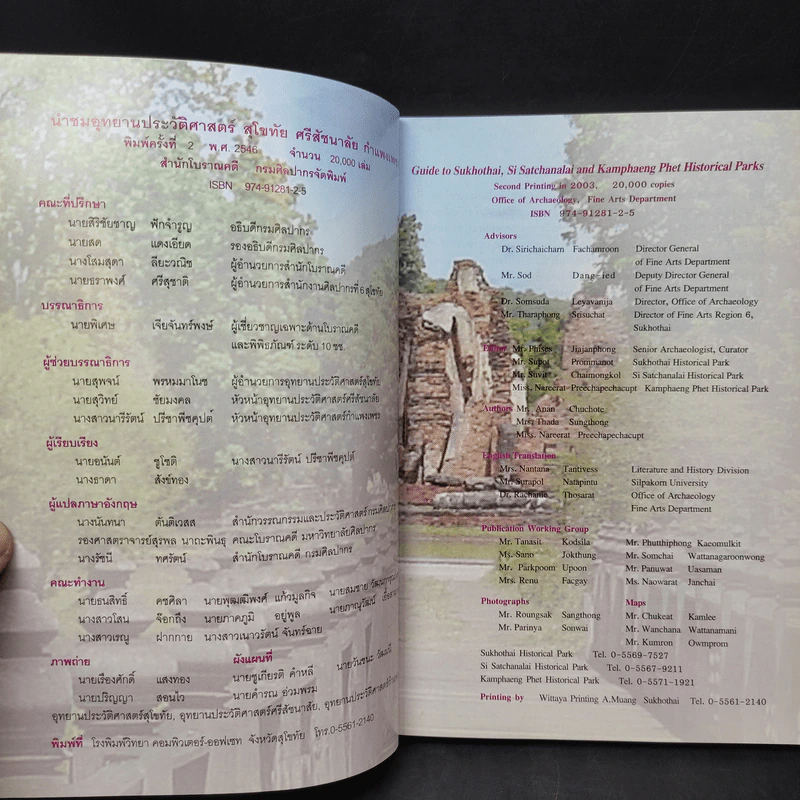 นำชมอุทยานประวัติศาสตร์ สุโขทัย ศรีสัชนาลัย กำแพงเพชร
พิมพ์ครั้งที่ 2 พ.ศ. 2546 จำนวน 20,000 เล่ม
สำนักโบราณคดี กรมศิลปากรจัดพิมพ์
ISBN 974-91281-2-5
คณะที่ปรึกษา
นายสิริชัยชาญ ฟักจำรูญ อธิบดีกรมศิลปากร
นายสด แดงเอียด รองอธิบดีกรมศิลปากร
นางโสมสุดา ลียะวณิช ผู้อำนวยการสำนักโบราณคดี
นายธราพงศ์ ศรีสุชาติ ผู้อำนวยการสำนักงานศิลปากรที่ 6 สุโขทัย
บรรณาธิการ
นายพิเศษ เจียจันทร์พงษ์ ผู้เชี่ยวชาญเฉพาะด้านโบราณคดี
และพิพิธภัณฑ์ ระดับ 10 ชช.
ผู้ช่วยบรรณาธิการ
นายสุพจน์ พรหมมาโนช ผู้อำนวยการอุทยานประวัติศาสตร์สุโขทัย
นายสุวิทย์ ชัยมงคล หัวหน้าอุทยานประวัติศาสตร์ศรีสัชนาลัย
นางสาวนารีรัตน์ ปรีชาพีชคุปต์ หัวหน้าอุทยานประวัติศาสตร์กำแพงเพชร
ผู้เรียบเรียง
นายอนันต์ ชูโชติ นางสาวนารีรัตน์ ปรีชาพีชคุปต์
นางธาดา สังข์ทอง
ผู้แปลภาษาอังกฤษ
นางนันทนา ตันติเวสส สำนักวรรณกรรมและประวัติศาสตร์ กรมศิลปากร
รองศาสตราจารย์สุรพล นาถะพินธุ คณะโบราณคดี มหาวิทยาลัยศิลปากร
นางรัชนี ทศรัตน์ สำนักโบราณคดี กรมศิลปากร
คณะทำงาน
นายธนสิทธิ์ คชศิลา นายพุฒิพงศ์ แก้วมูลกิจ นายสมชาย
นางสาวโสน จ๊อกถึง นายภาคภูมิ อยู่พูล นายภาณุวัฒน์
นางสาวเรณู ฝากกาย นางสาวเนาวรัตน์ จันทร์ฉาย
ภาพถ่าย ผังแผนที่
นายเรืองศักดิ์ แสงทอง นายชูเกียรติ คำหลี นายวันชนะ
นายปริญญา สอนไว นายคำรณ อ่วมพรม
อุทยานประวัติศาสตร์สุโขทัย, อุทยานประวัติศาสตร์ศรีสัชนาลัย,
พิมพ์ที่ โรงพิมพ์วิทยา คอมพิวเตอร์-ออฟเซท จังหวัดสุโขทัย โทร.0-5561-2140
Guide to Sukhothai, Si Satchanalai and Kamphaeng Phet Historical Parks
Second Printing in 2003, 20,000 copies
Office of Archaeology, Fine Arts Department
ISBN 974-91281-2-5
Advisors
Dr. Sirichaicharn Fachamroon Director General
of Fine Arts Department
Mr. Sod Dang-ied Deputy Director General
of Fine Arts Department
Dr. Somsuda Leyavanija Director, Office of Archaeology
Mr. Tharaphong Srisuchat Director of Fine Arts Region 6,
Sukhothai
Editor Mr. Phises Jiajanphong Senior Archaeologist, Curator
Mr. Supot Prommanot Sukhothai Historical Park
Mr. Suvit Chaimongkol Si Satchanalai Historical Park
Miss. Nareerat Preechapechacupt Kamphaeng Phet Historical Park
Authors Mr. Anan Chuchote
Mrs. Thada Sungthong
Miss. Nareerat Preechapechacupt
English Translation
Mrs. Nantana Tantivess Literature and History Division
Mr. Surapol Natapintu Silpakorn University
Dr. Rachanie Thosarat Office of Archaeology
Fine Arts Department
Publication Working Group
Mr. Tanasit Kodsila Mr. Phutthiphong Kaeomulkit
Ms. Sano Jokthung Mr. Somchai Wattanagaroonwong
Mr. Parkpoom Upoon Mr. Panuwat Uasaman
Mrs. Renu Facgay Ms. Naowarat Janchai
Photographs Maps
Mr. Roungsak Sangthong Mr. Chukeat Kamlee
Mr. Parinya Sonwai Mr. Wanchana Wattanamani
Mr. Kumron Owmprom
Sukhothai Historical Park Tel. 0-5569-7527
Si Satchanalai Historical Park Tel. 0-5567-9211
Kamphaeng Phet Historical Park Tel. 0-5571-1921
Printing by Wittaya Printing A.Muang Sukhothai Tel. 0-5561-2140